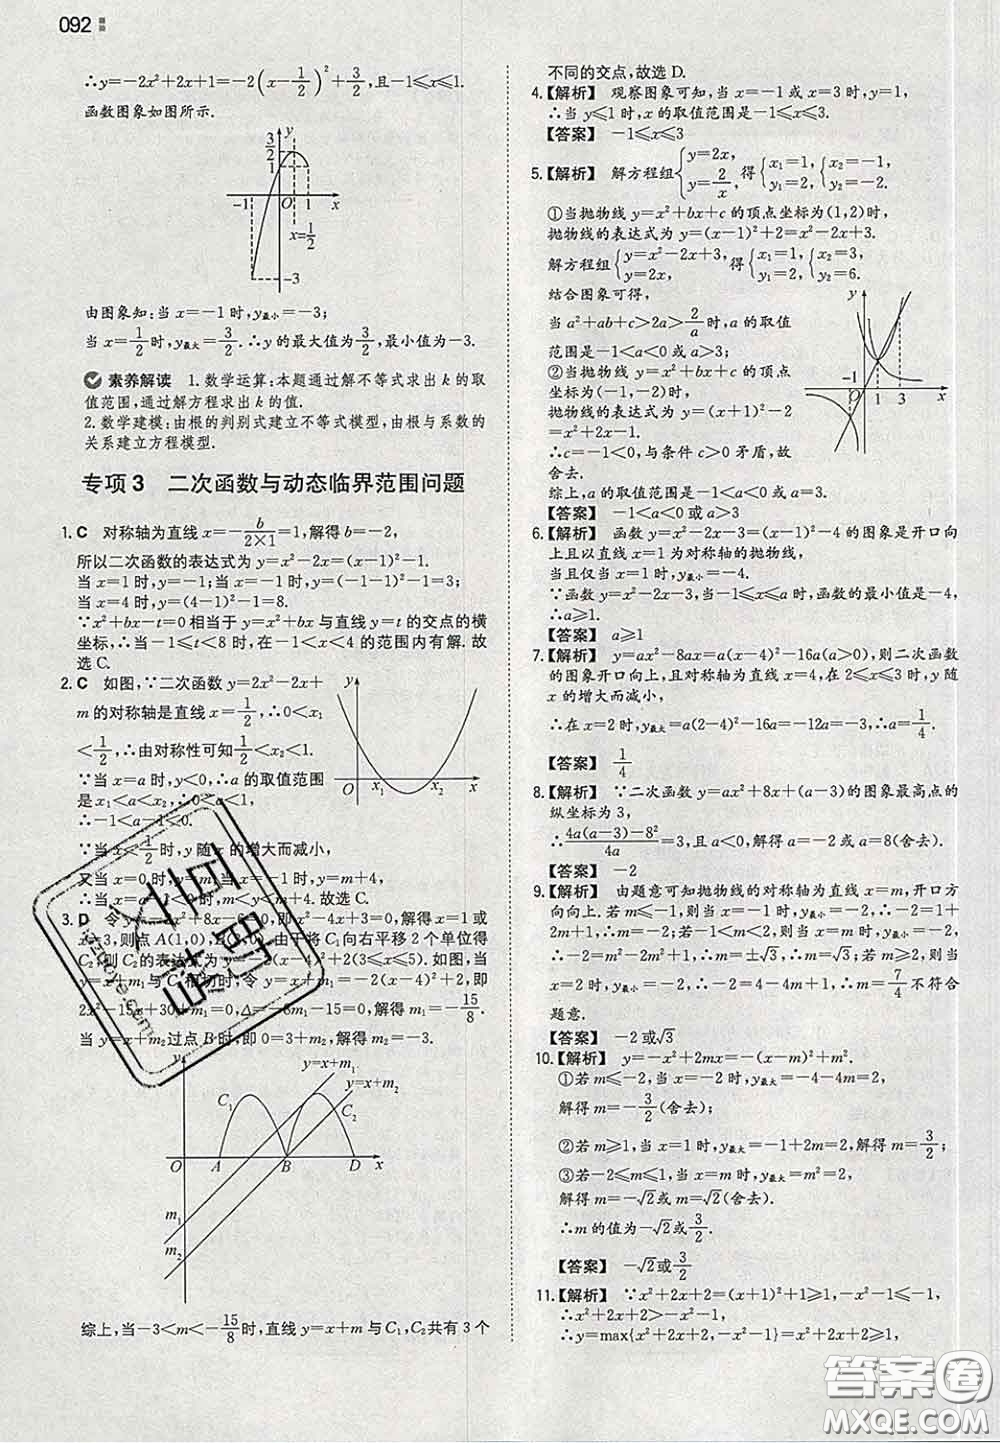 092
∴y=-2x²+2x+1=-2(x-1/2)²+3/2,且-1≤x≤1.
函数图象如图所示.
y
3/2
1
-1 O 1 x
x=1/2
-3
由图象知:当x=-1时,y最小=-3;
当x=1/2时,y最大=3/2.∴y的最大值为3/2,最小值为-3.
素养解读 1.数学运算:本题通过解不等式求出k的取
值范围,通过解方程求出k的值.
2.数学建模:由根的判别式建立不等式模型,由根与系数的
关系建立方程模型.
专项3 二次函数与动态临界范围问题
1.C 对称轴为直线x=-b/(2×1)=1,解得b=-2,
所以二次函数的表达式为y=x²-2x=(x-1)²-1.
当x=1时,y=-1;当x=-1时,y=(-1-1)²-1=3;
当x=4时,y=(4-1)²-1=8.
∵x²+bx-t=0相当于y=x²+bx与直线y=t的交点的横
坐标,∴当-1≤t<8时,在-1<x<4的范围内有解.故
选C.
2.C 如图,∵二次函数y=2x²-2x+
m的对称轴是直线x=1/2,∴0<x₁
<1/2,∴由对称性可知1/2<x₂<1.
∵当x=a时,y<0,∴a的取值范围
是x₁<a<x₂,∴0<a<1,
∴-1<a-1<0.
y
O x₁ x₂ x
∵当x<1/2时,y随x的增大而减小,
又当x=0时,y=m,当x=-1时,y=m+4,
∴当x=a-1<0时,m<y<m+4.故选C.
3.D 令y=-2x²+8x-6=0,即x²-4x+3=0,解得x=1或
x=3,则点A(1,0),B(3,0).由于将C₁向右平移2个单位得
C₂,则C₂的表达式为y=-2(x-4)²+2(3≤x≤5).如图,当
y=x+m₁与C₂相切时,令y=x+m₁=-2(x-4)²+2,即
2x²-15x+30+m₁=0,Δ=-8m₁-15=0,解得m₁=-15/8.
当y=x+m₂过点B时,即0=3+m₂,解得m₂=-3.
y
y=x+m₁
y=x+m₂
C₁ C₂
O A B D x
m₁
m₂
综上,当-3<m<-15/8时,直线y=x+m与C₁,C₂共有3个
不同的交点,故选D.
4.【解析】 观察图象可知,当x=-1或x=3时,y=1,
∴当y≤1时,x的取值范围是-1≤x≤3.
【答案】 -1≤x≤3
5.【解析】 解方程组{y=2x, y=2/x,得{x₁=1, y₁=2,{x₂=-1, y₂=-2.
①当抛物线y=x²+bx+c的顶点坐标为(1,2)时,
抛物线的表达式为y=(x-1)²+2=x²-2x+3.
解方程组{y=x²-2x+3, y=2x,得{x₁=1, y₁=2,{x₂=3, y₂=6.
结合图象可得,
当a²+ab+c>2a>2/a时,a的取值
范围是-1<a<0或a>3;
②当抛物线y=x²+bx+c的顶点
坐标为(-1,-2)时,
抛物线的表达式为y=(x+1)²-2
=x²+2x-1.
y
-1
O 1 3 x
∴c=-1<0,与条件c>0矛盾,故
舍去.
综上,a的取值范围是-1<a<0或a>3.
【答案】 -1<a<0或a>3
6.【解析】 函数y=x²-2x-3=(x-1)²-4的图象是开口向
上且以直线x=1为对称轴的抛物线,
当且仅当x=1时,y最小=-4.
∵函数y=x²-2x-3,当-1≤x≤a时,函数的最小值是-4,
∴a≥1.
【答案】 a≥1
7.【解析】 y=ax²-8ax=a(x-4)²-16a(a>0),则二次函数
的图象开口向上,且对称轴为直线x=4,在2≤x≤3时,y随
x的增大而减小,
∴在x=2时,y最大=a(2-4)²-16a=-12a=-3,∴a=1/4.
【答案】 1/4
8.【解析】 ∵二次函数y=ax²+8x+(a-3)的图象最高点的
纵坐标为3,
∴(4a(a-3)-8²)/4a=3,且a<0,解得a=-2或a=8(舍去).
【答案】 -2
9.【解析】 由题意可知抛物线的对称轴为直线x=m,开口方
向向上.若m≤-1,当x=-1时,y最小=-2,∴-2=1+
2m+1,∴m=-2;若-1<m<2,当x=m时,y最小=-2,
∴-2=m²-2m²+1,∴m=±√3,∴m=√3;若m≥2,则当
x=2时,y最小=-2,∴-2=4-4m+1,∴m=7/4不符合
题意.
【答案】 -2或√3
10.【解析】 y=-x²+2mx=-(x-m)²+m².
①若m≤-2,当x=-2时,y最大=-4-4m=2,
解得m=-3/2(舍去);
②若m≥1,当x=1时,y最大=-1+2m=2,解得m=3/2;
③若-2≤m≤1,当x=m时,y最大=m²=2,
解得m=-√2或m=√2(舍去).
∴m的值为-√2或3/2.
【答案】 -√2或3/2
11.【解析】 ∵x²+2x+2=(x+1)²+1≥1,-x²-1≤-1,
∴x²+2x+2>-x²-1,
∴y=max{x²+2x+2,-x²-1}=x²+2x+2≥1,
答案圈
MXQE.COM